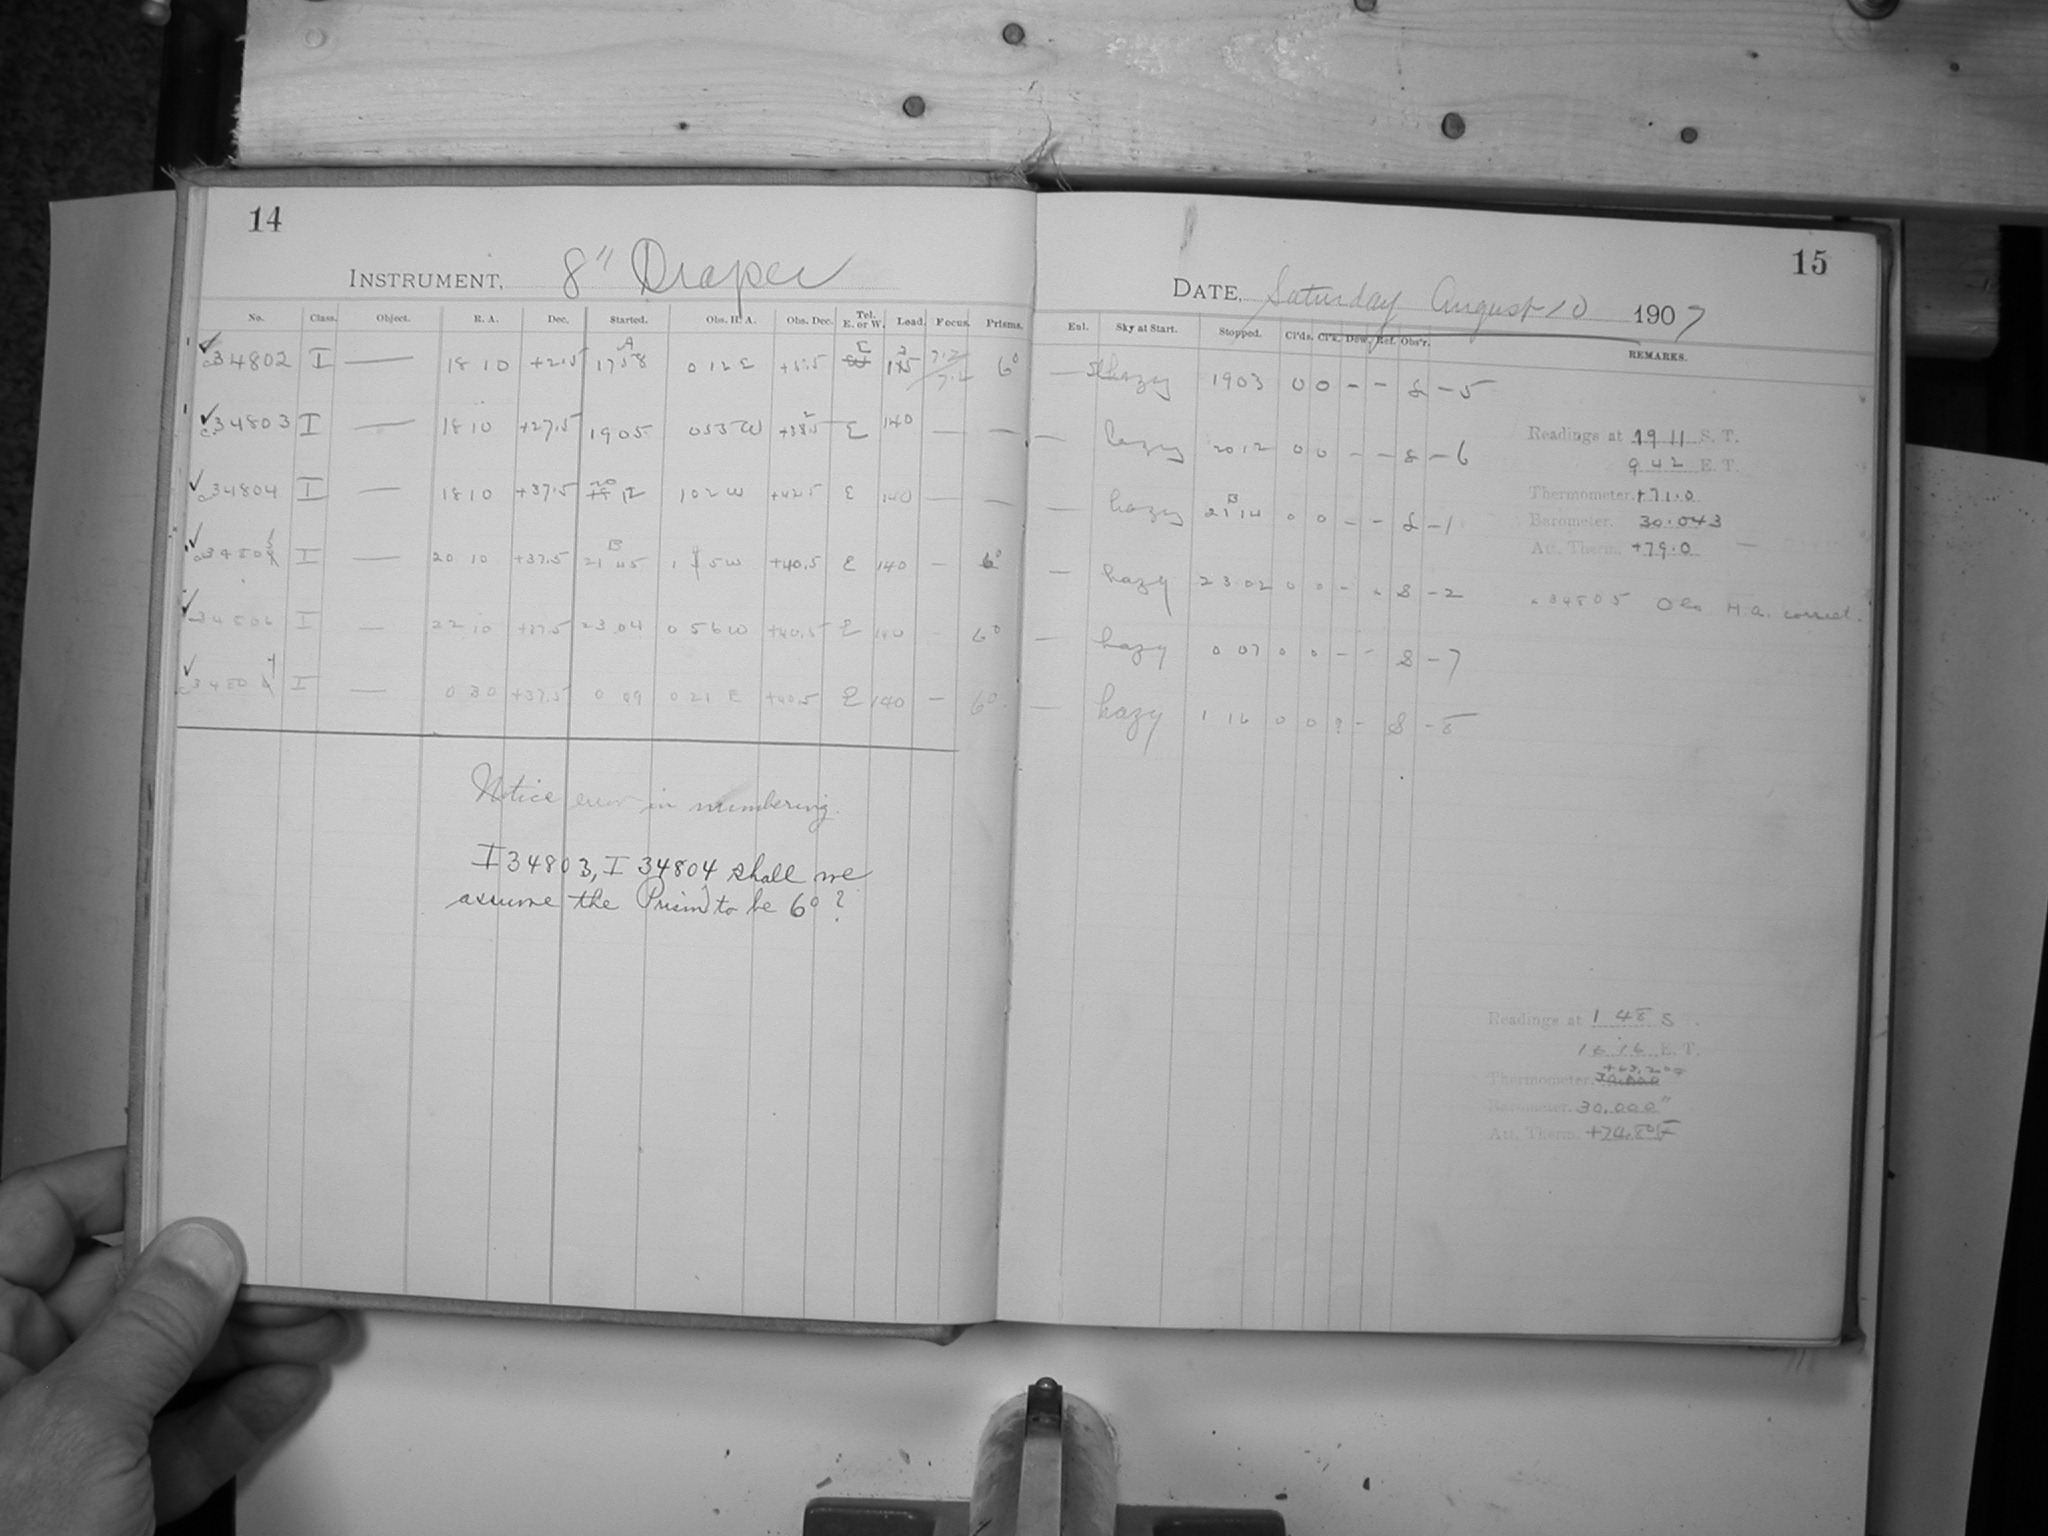 14
INSTRUMENT, 8" Draper
No. Class. Object. R. A. Dec. Started. Obs. H. A. Obs. Dec. Tel. E. or W. Load. Focus. Prisms.
34802 I — 18 10 +2.5 17 58 0 12 E E 6°
34803 I — 18 10 +27.5 19 05 0 53 W E 140 — —
34804 I — 18 10 +37.5 20 12 1 02 W +42.5 E 140 — —
34805 I — 20 10 +37.5 21 45 +40.5 E 140 — 6°
34806 I — 22 10 +37.5 23 04 0 56 W +40.5 E 140 - 6°
I — 0 30 +37.5 0 09 0 21 E +40.5 E 140 — 6°
Notice error in numbering.
I 34803, I 34804 shall we
assume the Prism to be 6°?
15
DATE, Saturday August 10 1907
Enl. Sky at Start. Stopped. Cl'ds. Cl'k. Dew. Ref. Obs'r. REMARKS.
— hazy 1903 0 0 - - S - 5
— hazy 20 12 0 0 - - S - 6
— hazy 21 14 0 0 - - S - 1
— hazy 23 02 0 0 - S - 2
— hazy 0 07 0 0 - - S - 7
— hazy 1 16 0 0 ? - S - 8
Readings at 19 11 S. T.
9 42 E. T.
Thermometer. +71.0
Barometer. 30.043
Att. Therm. +79.0
34805 Obs H.A. correct.
Readings at 1 48 S
16 16 E. T.
Thermometer.
Barometer. 30.000"
Att. Therm.